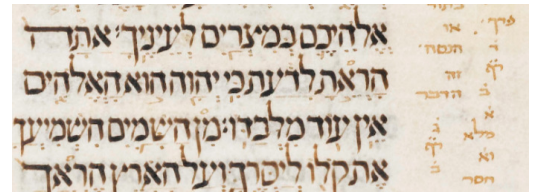 אלהיכם במצרים לעיניך אתה
הראת לדעת כי יהוה הוא האלהים
אין עוד מלבדו מן השמים השמיעך
את קלו ליסרך ועל הארץ הראך
או
הנסה
הדבר
מלא
חסר